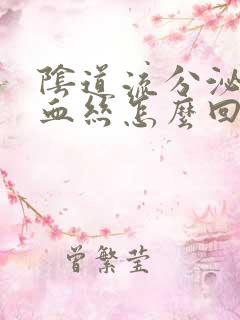 陰道流分泌
血絲怎麼回
曾繁莹